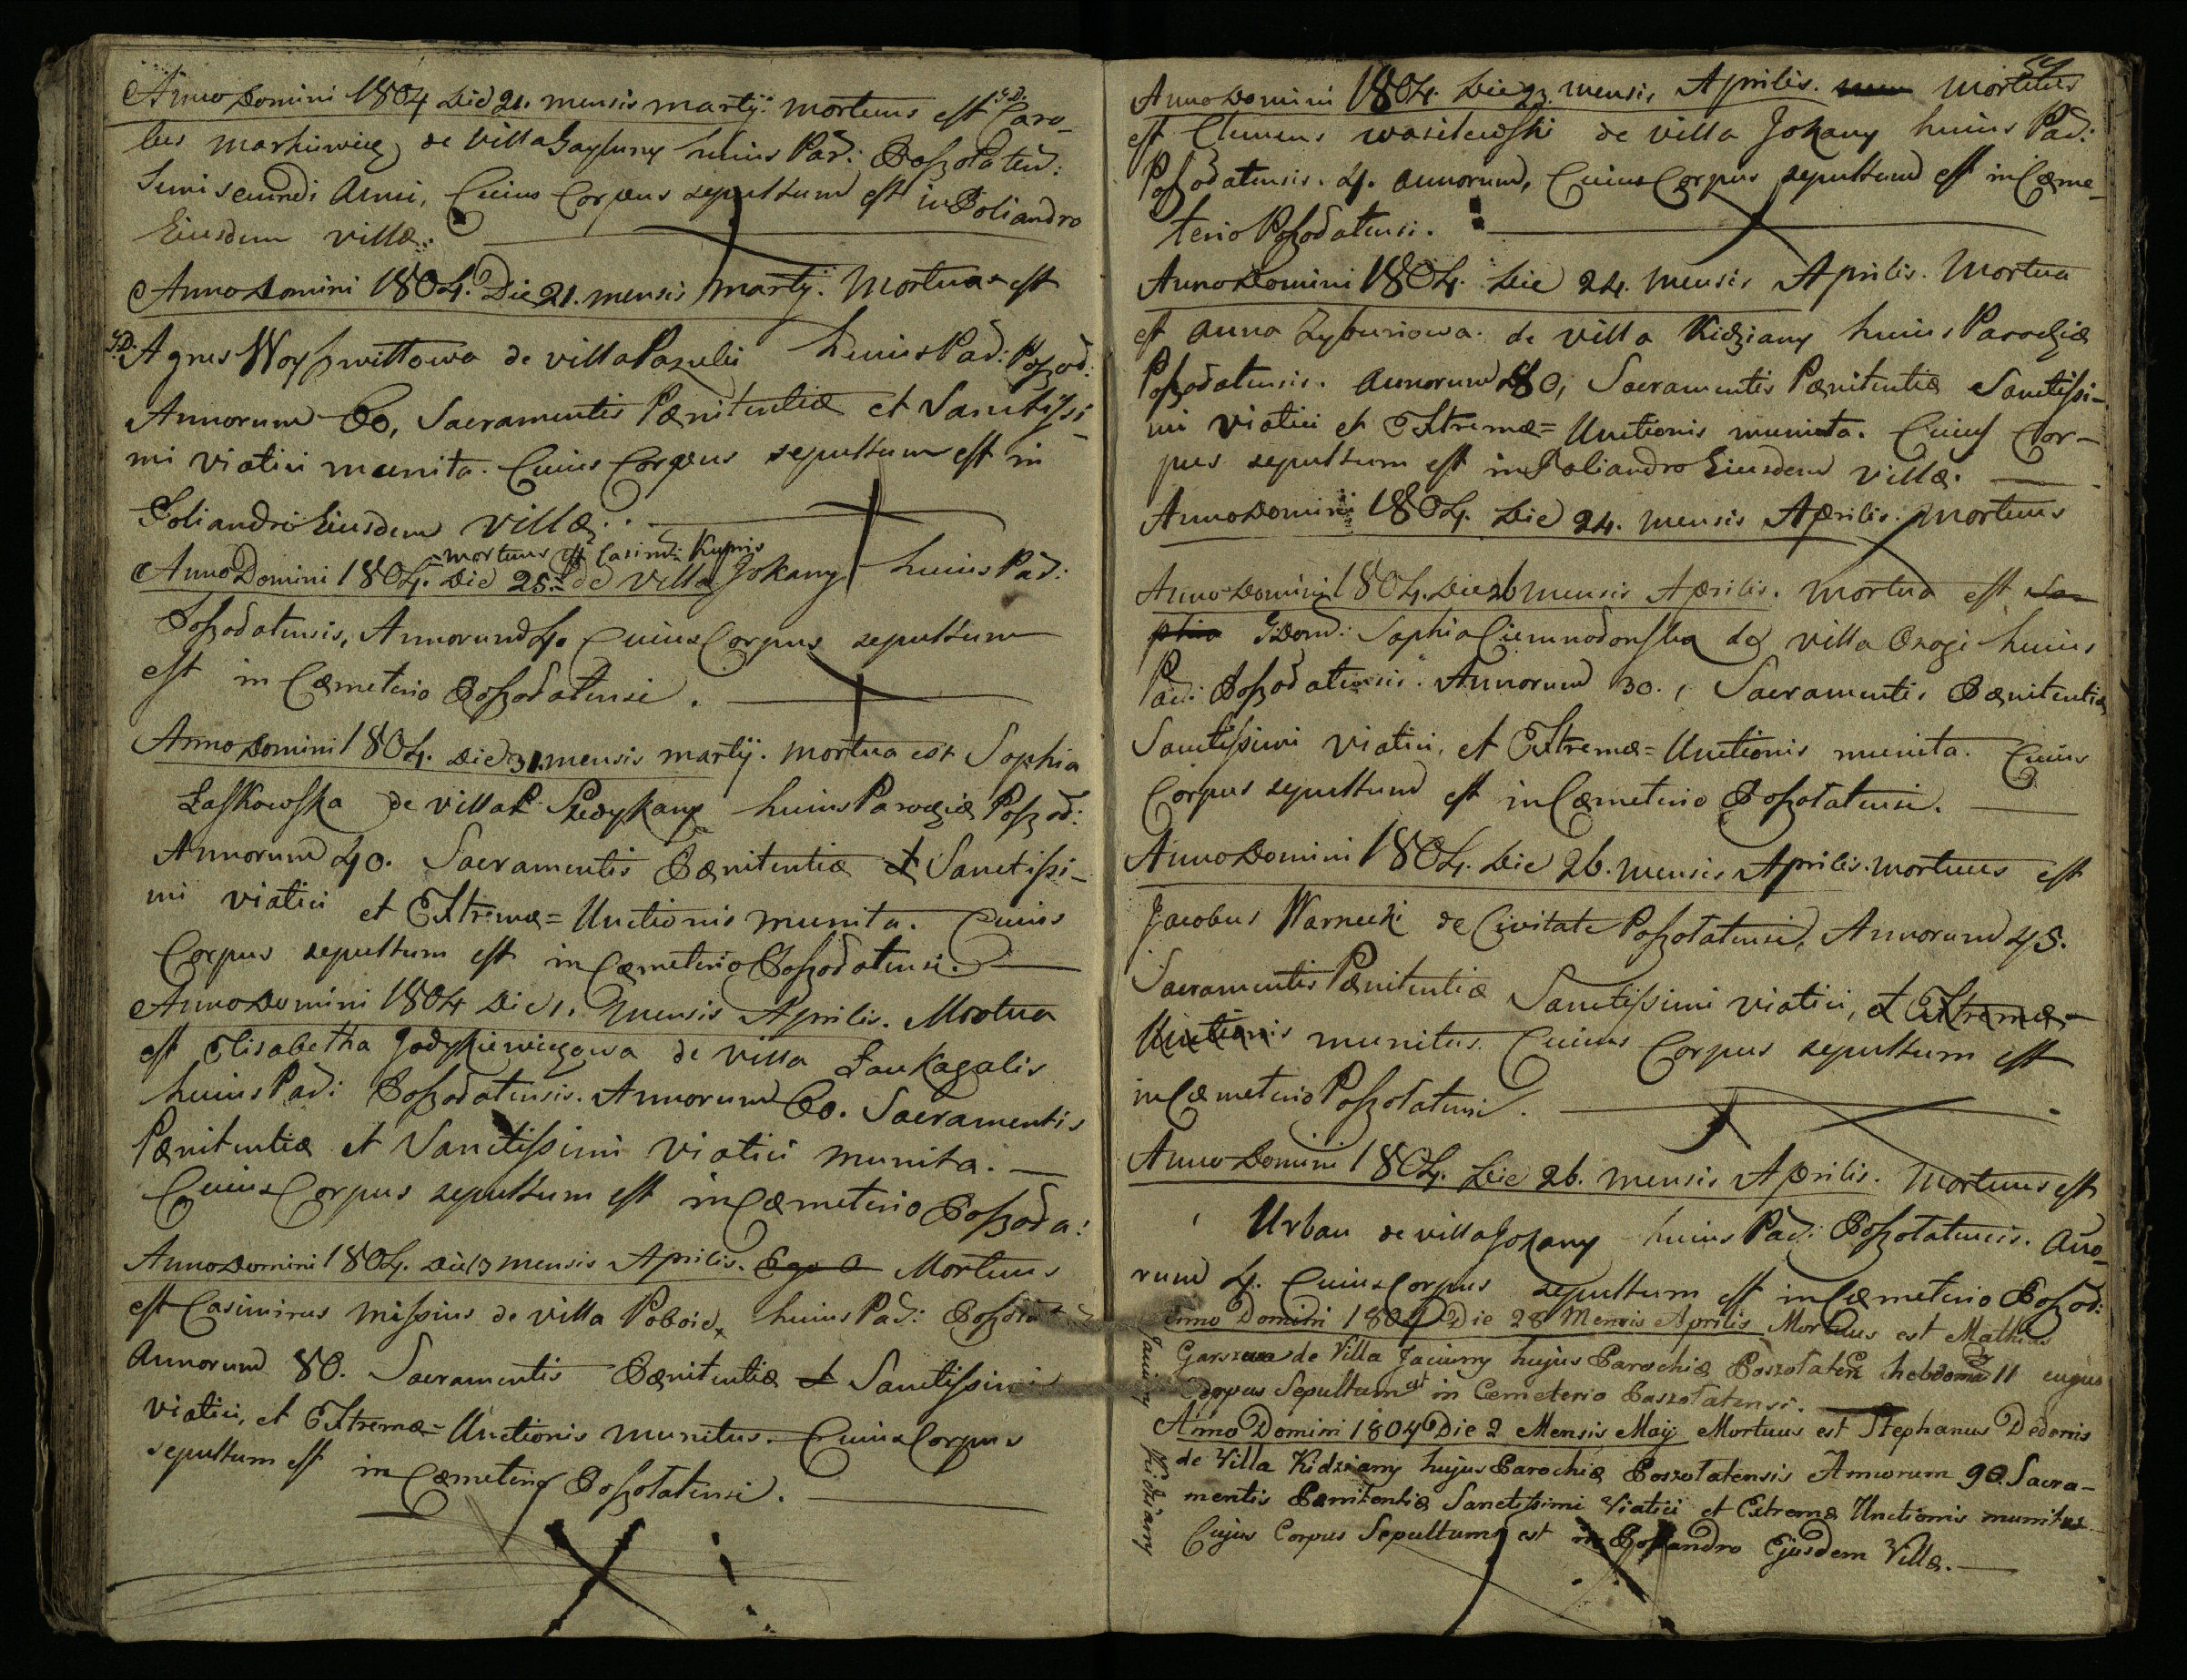 Anno Domini 1804 Die 21. mensis martij. mortuus est G.D. Caro-
lus Markiewicz de villa Gayluny huius Par: Poszolaten:
Sui secundi Anni, Cuius Corpus sepultum est in Poliandro
Eiusdem villæ.
Anno Domini 1804. Die 21. mensis martij. Mortua est
G.D. Agnes Woyszwittowa de villa Pazuli huius Pad: Poszod:
Annorum 60, Sacramentis Pænitentiæ et Sanctissi-
mi viatici munita. Cuius Corpus sepultum est in
Poliandri Eiusdem villæ.
mortuus est Casimi: Kupris
Anno Domini 1804. Die 25. de villa Jokany huius Pad:
Poszodatensis, Annorum 4. Cuius Corpus sepultum
est in Cæmeterio Poszodatensi.
Anno Domini 1804. Die 31. mensis martij. mortua est Sophia
Laskowska de villa Szedykany huius Parochiæ Poszod:
Annorum 40. Sacramentis Pænitentiæ et Sanctissi-
mi viatici et Extremæ = Unctionis munita. Cuius
Corpus sepultum est in Cæmeterio Poszodatensi.
Anno Domini 1804 Die 1. Mensis Aprilis. Mortua
est Elisabetha Jodykiewiczowa de villa Laukagalis
huius Pad: Poszodatensis. Annorum 60. Sacramentis
Pænitentiæ et Sanctissimi viatici munita.
Cuius Corpus sepultum est in Cæmeterio Poszoda:
Anno Domini 1804. Die 13 mensis Aprilis. Ego Mortuus
est Casimirus Missius de villa Poboie, huius Pad:
Annorum 80. Sacramentis Pænitentiæ et Sanctissimi
viatici, et Extremæ = Unctionis munitus. Cuius Corpus
sepultum est in Cæmeterio Poszolatensi.
Anno Domini 1804. Die 23. mensis Aprilis. Mortuus
est Clemens Wasilewski de villa Jokany huius Pad:
Poszodatensis. 4. annorum, Cuius Corpus sepultum est in Cæme-
terio Poszodatensi.
Anno Domini 1804. Die 24. mensis Aprilis. Mortua
est Anna Zyburiowa. de villa Kidziany huius Parochiæ
Poszodatensis. Annorum 80, Sacramentis Pænitentiæ Sanctissi-
mi viatici et Extremæ = Unctionis munita. Cuius Cor-
pus sepultum est in Poliandro Eiusdem villæ.
Anno Domini 1804. Die 24. mensis Aprilis. Mortuus
Anno Domini 1804. Die 26 mensis Aprilis. Mortua est So-
phia G. Dom: Sophia Ciemnodonska de villa Oragi huius
Pad: Poszodatensis. Annorum 30., Sacramentis Pænitentiæ
Sanctissimi viatici, et Extremæ = Unctionis munita. Cuius
Corpus sepultum est in Cæmeterio Poszolatensi.
Anno Domini 1804. Die 26. mensis Aprilis. mortuus est
Jacobus Warnecki de Civitate Poszolatensi, Annorum 45.
Sacramentis Pænitentiæ Sanctissimi viatici, et Extremæ-
Unctionis munitus. Cuius Corpus sepultum est
in Cæmeterio Poszolatensi.
Anno Domini 1804. Die 26. mensis Aprilis. Mortuus est
Urban de villa Jokany huius Pad: Poszolatensis. Ano-
rum 4. Cuius Corpus sepultum est in Cæmeterio Poszod:
Anno Domini 1804 Die 28 Mensis Aprilis Mortuus est Mathias
de Villa Jaciuny hujus Parochiæ Poszolaten hebdoma 11 cujus
Corpus Sepultum est in Cæmeterio Poszolatensi.
Anno Domini 1804 Die 2 Mensis Maij Mortuus est Stephanus Dedonis
de Villa Kidziany hujus Parochiæ Poszolatensis Annorum 90. Sacra-
mentis Pænitentiæ Sanctissimi Viatici et Extremæ Unctionis munitus
Cujus Corpus Sepultum est in Poliandro Ejusdem Villæ.
Jaciuny
Kidziany